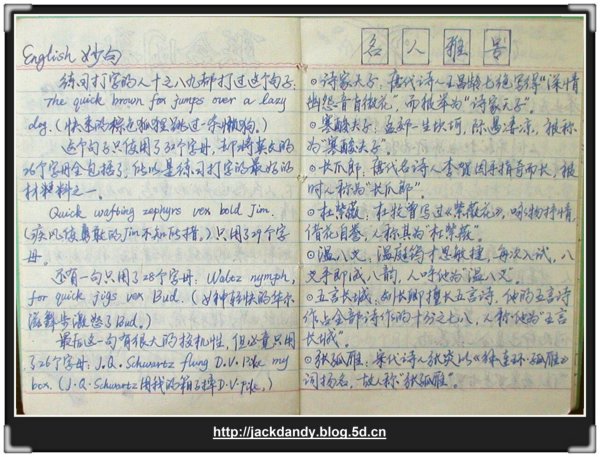 English 妙句
练习打字的人十之八九都打过这个句子:
The quick brown fox jumps over a lazy
dog.(快来的棕色狐狸跳过一条懒狗。)
这个句子只使用了32个字母,却将英文的
26个字母全包括了,所以是练习打字的最好的
材料之一。
Quick wafting zephyrs vex bold Jim.
(疾风使勇敢的Jim不知所措。)只用了29个字
母。
还有一句只用了28个字母:Waltz nymph,
for quick jigs vex Bud.(女神轻快的华尔
滋舞步激怒了Bud。)
最后这一句有很大的投机性,但必竟只用
了26个字母:J.Q. Schwartz flung D.V. Pike my
box.(J.Q. Schwartz用我的箱子摔D.V. Pike.)
名人雅号
诗家夫子:唐代诗人王昌龄七绝写得“深情
幽怨音旨微茫”,而被举为“诗家夫子”。
寒酸夫子:孟郊一生坎坷,际遇凄凉,被称
为“寒酸夫子”。
长爪郎:唐代名诗人李贺因手指奇而长,被
时人称为“长爪郎”。
杜紫薇:杜牧曾写过《紫薇花》,咏物抒情,
借花自誉,人称其为“杜紫薇”。
温八叉:温庭筠才思敏捷,每次入试,八
叉手即成八韵,人呼他为“温八叉”。
五言长城:刘长卿擅长五言诗,他的五言诗
作占全部诗作的十分之七八,人称他为“五言
长城”。
张孤雁:宋代诗人张炎以《解连环·孤雁》
词扬名,故人称“张孤雁”。
http://jackdandy.blog.5d.cn